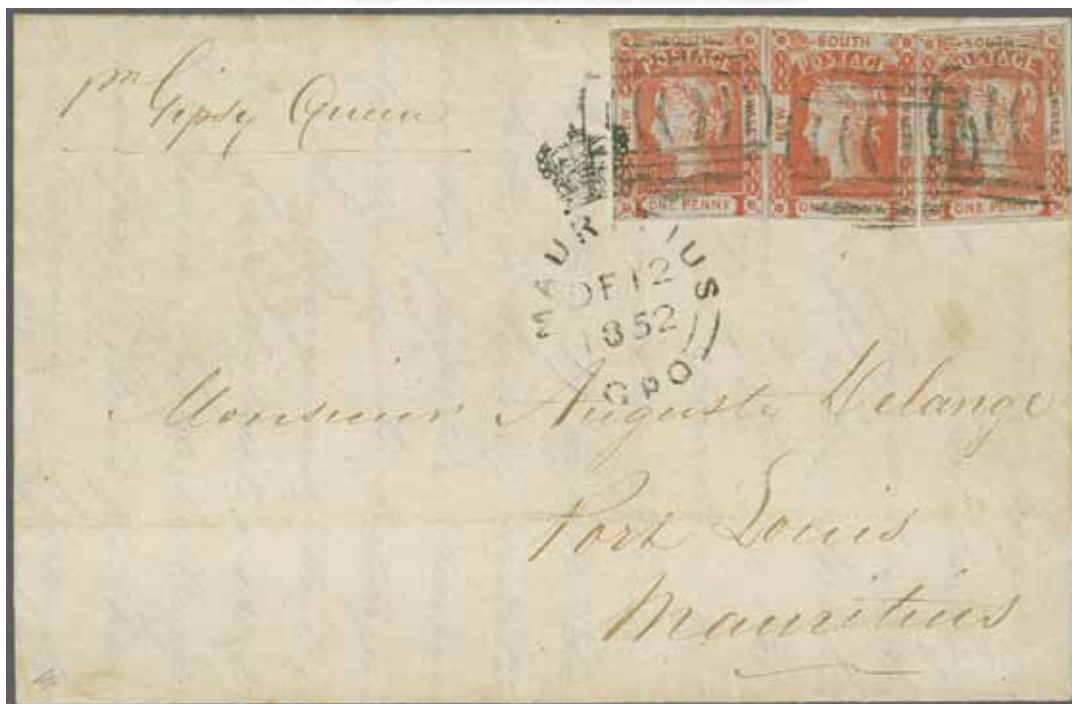 pr Gipsy Queen
SOUTH
POSTAGE
NEW
WALES
ONE PENNY
SOUTH
POSTAGE
NEW
WALES
ONE PENNY
SOUTH
POSTAGE
WALES
ONE PENNY
MAURITIUS
DE 12
1852
GPO
Monsieur Auguste Delange
Port Louis
Mauritius